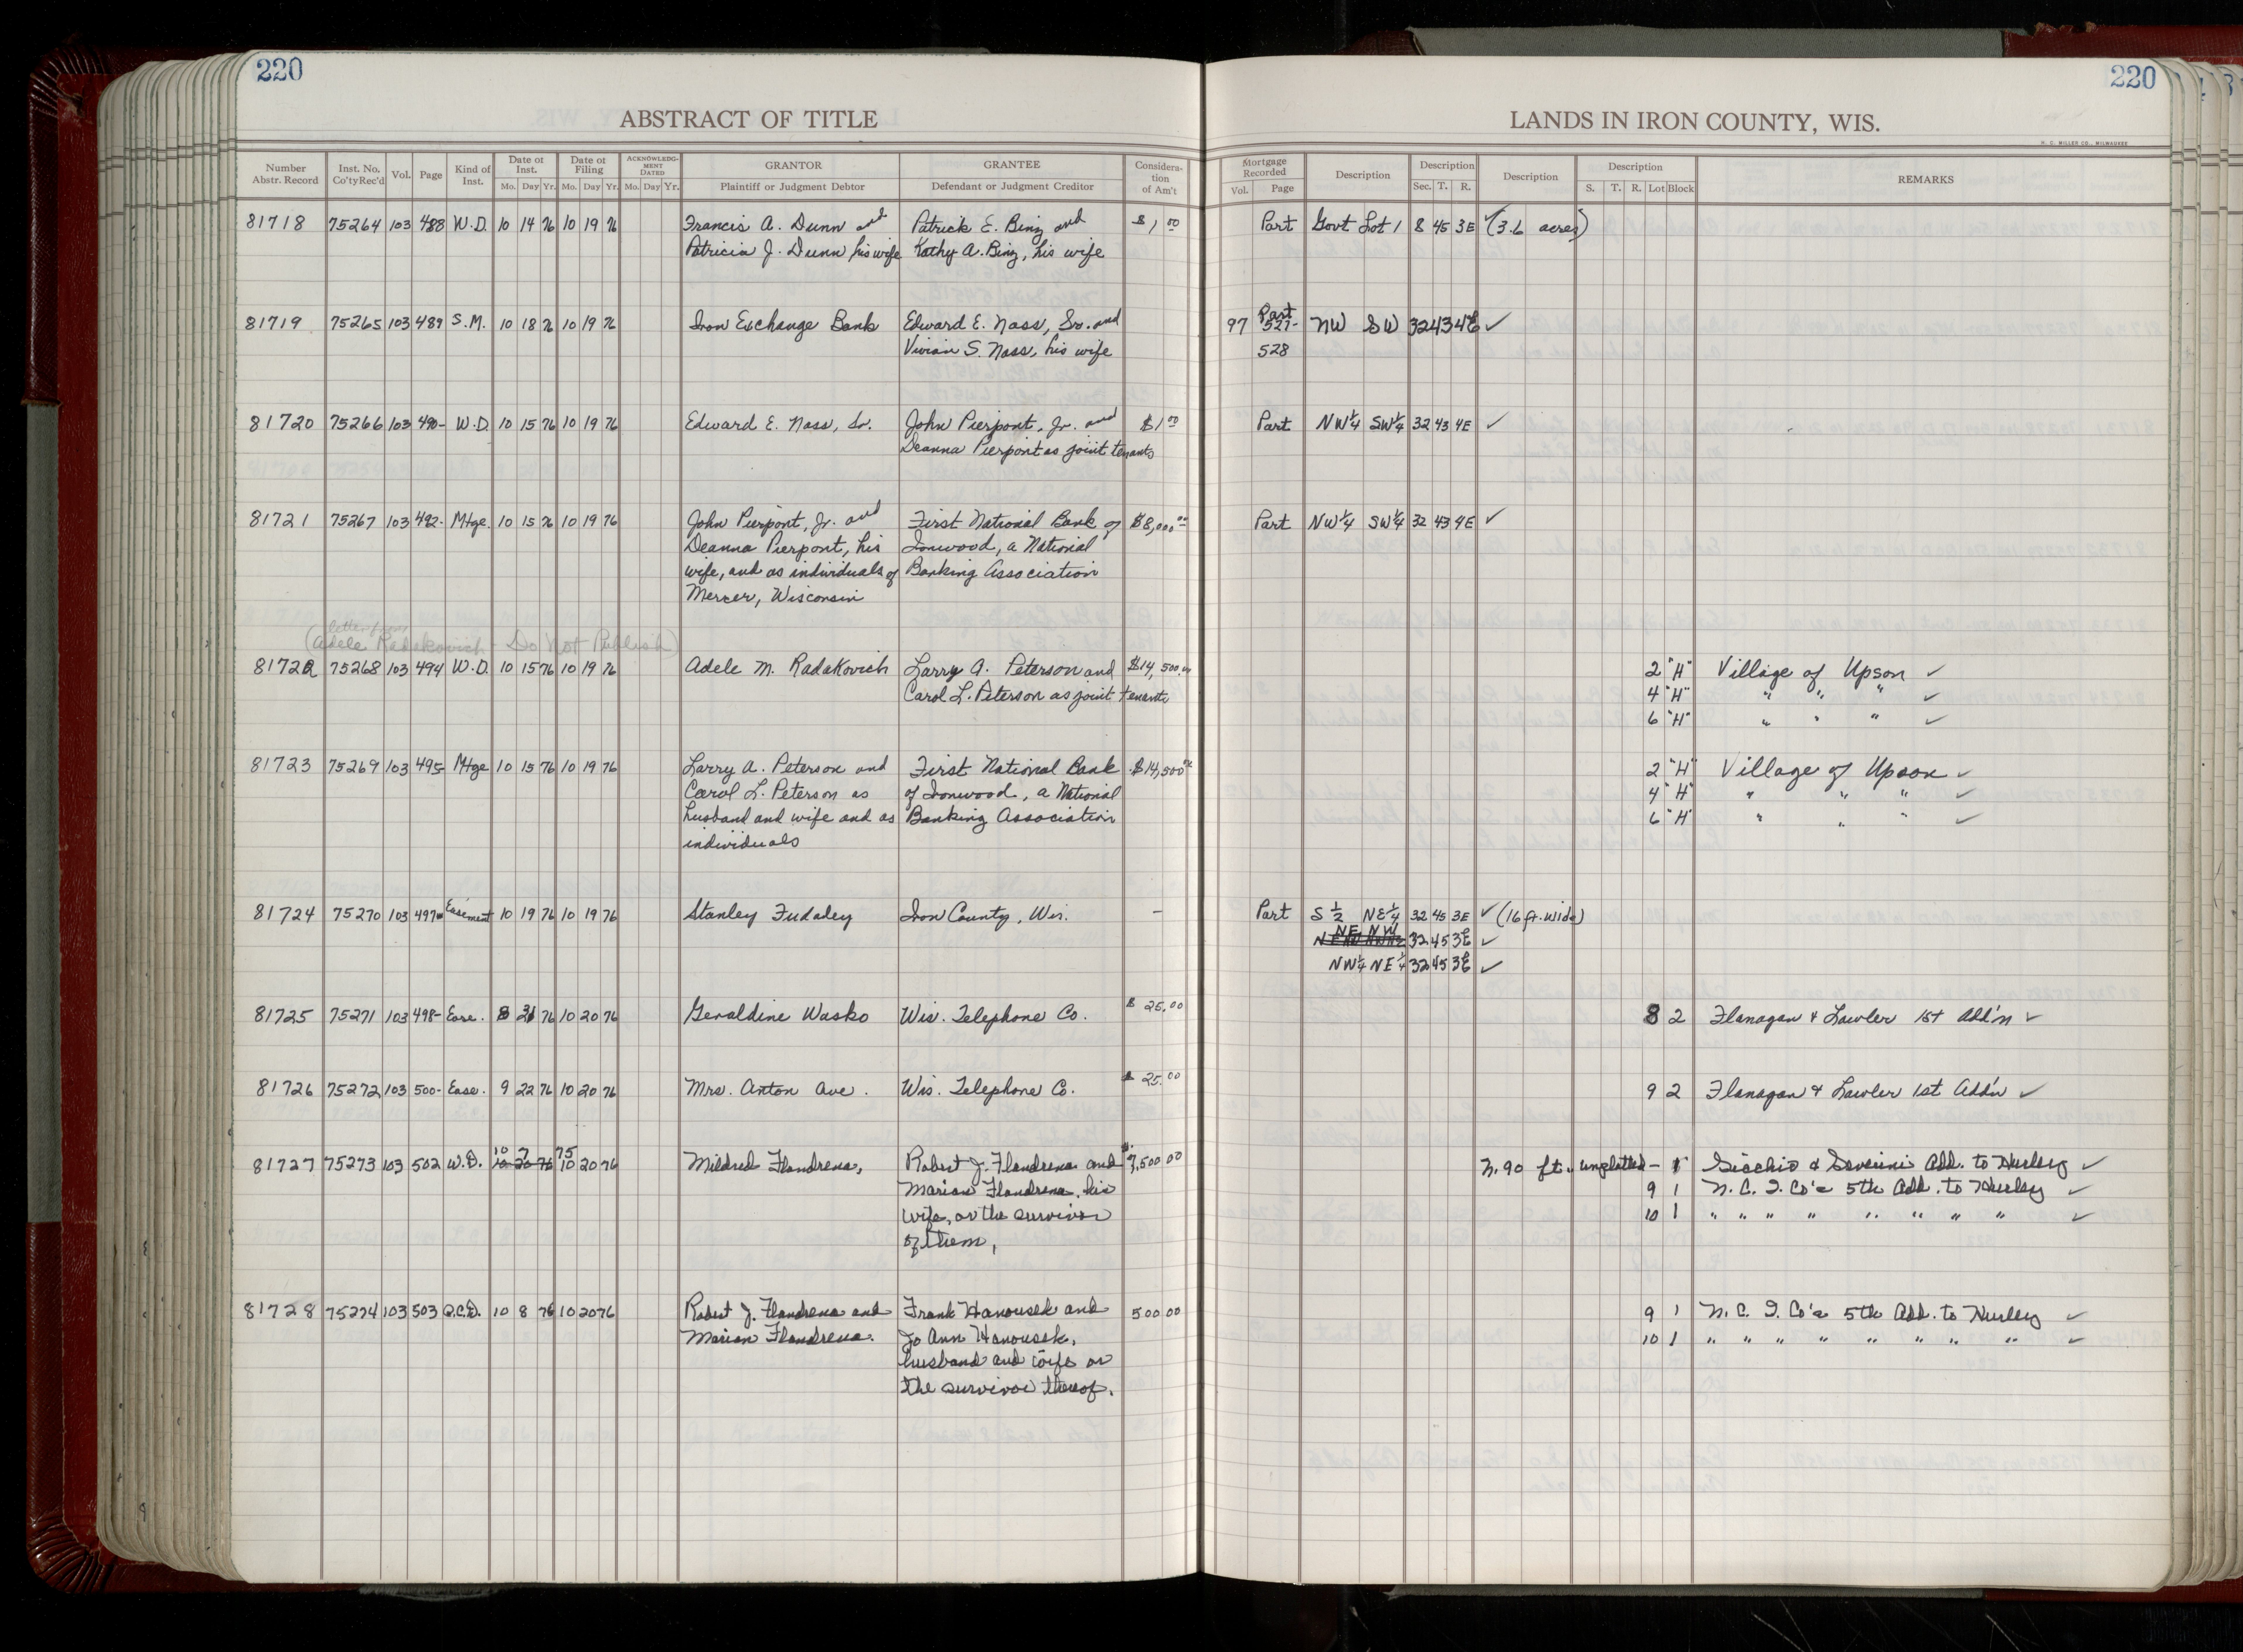 220
220
ABSTRACT OF TITLE
LANDS IN IRON COUNTY, WIS.
H. C. MILLER CO., MILWAUKEE
Number Abstr. Record Inst. No. Co'ty Rec'd Vol. Page Kind of Inst. Date of Inst. Mo. Day Yr. Date of Filing Mo. Day Yr. ACKNOWLEDGMENT DATED Mo. Day Yr. GRANTOR Plaintiff or Judgment Debtor GRANTEE Defendant or Judgment Creditor Consideration of Am't Mortgage Recorded Vol. Page Description Description Sec. T. R. Description Description S. T. R. Lot Block REMARKS
81718 75264 103 488 W.D. 10 14 76 10 19 76 Francis A. Dunn and Patrick E. Binz and $1 00 Part Govt Lot 1 8 45 3E ✓ (3.6 acres)
Patricia J. Dunn his wife Kathy A. Binz, his wife
81719 75265 103 489 S.M. 10 18 76 10 19 76 Iron Exchange Bank Edward E. Nass, Sr. and 97 527- Part NW SW 32 43 4E ✓
Vivian S. Nass, his wife 528
81720 75266 103 490- W.D. 10 15 76 10 19 76 Edward E. Nass, Sr. John Pierpont, Jr. and $1 00 Part NW¼ SW¼ 32 43 4E ✓
Deanna Pierpont as joint tenants
81721 75267 103 492- Mtge. 10 15 76 10 19 76 John Pierpont, Jr. and First National Bank of $8,000 00 Part NW¼ SW¼ 32 43 4E ✓
Deanna Pierpont, his Ironwood, a National
wife, and as individuals of Banking Association
Mercer, Wisconsin
letter from
(Adele Radakovich - Do Not Publish)
81722 75268 103 494 W.D. 10 15 76 10 19 76 Adele M. Radakovich Larry A. Peterson and $14,500.00 2 "H" Village of Upson ✓
Carol L. Peterson as joint tenants 4 "H" " " " ✓
6 "H" " " " ✓
81723 75269 103 495- Mtge 10 15 76 10 19 76 Larry A. Peterson and First National Bank $14,500 00 2 "H" Village of Upson ✓
Carol L. Peterson as of Ironwood, a National 4 "H" " " " ✓
husband and wife and as Banking Association 6 "H" " " " ✓
individuals
81724 75270 103 497 Easement 10 19 76 10 19 76 Stanley Fudaley Iron County, Wis. - Part S ½ NE¼ 32 45 3E ✓ (16 ft. wide)
NE NW 32 45 3E ✓
NW¼ NE¼ 32 45 3E ✓
81725 75271 103 498- Ease. 8 31 76 10 20 76 Geraldine Wasko Wis. Telephone Co. $ 25.00 8 2 Flanagan & Lawler 1st Add'n ✓
81726 75272 103 500- Ease. 9 22 76 10 20 76 Mrs. Anton Ave. Wis. Telephone Co. $ 25.00 9 2 Flanagan & Lawler 1st Add'n ✓
10 7 75
81727 75273 103 502 W.D. 10 20 76 10 20 76 Mildred Flandrena, Robert J. Flandrena and $7,500 00 N. 90 ft. unplatted - & Severini Add. to Hurley ✓
Marian Flandrena, his 9 1 N. C. I. Co's 5th Add. to Hurley ✓
wife, or the survivor 10 1 " " " " " " " " ✓
of them,
81728 75274 103 503 Q.C.D. 10 8 76 10 20 76 Robert J. Flandrena and Frank Hanousek and 500.00 9 1 N. C. I. Co's 5th Add. to Hurley ✓
Marian Flandrena. Jo Ann Hanousek, 10 1 " " " " " " " " ✓
husband and wife or
the survivor thereof.